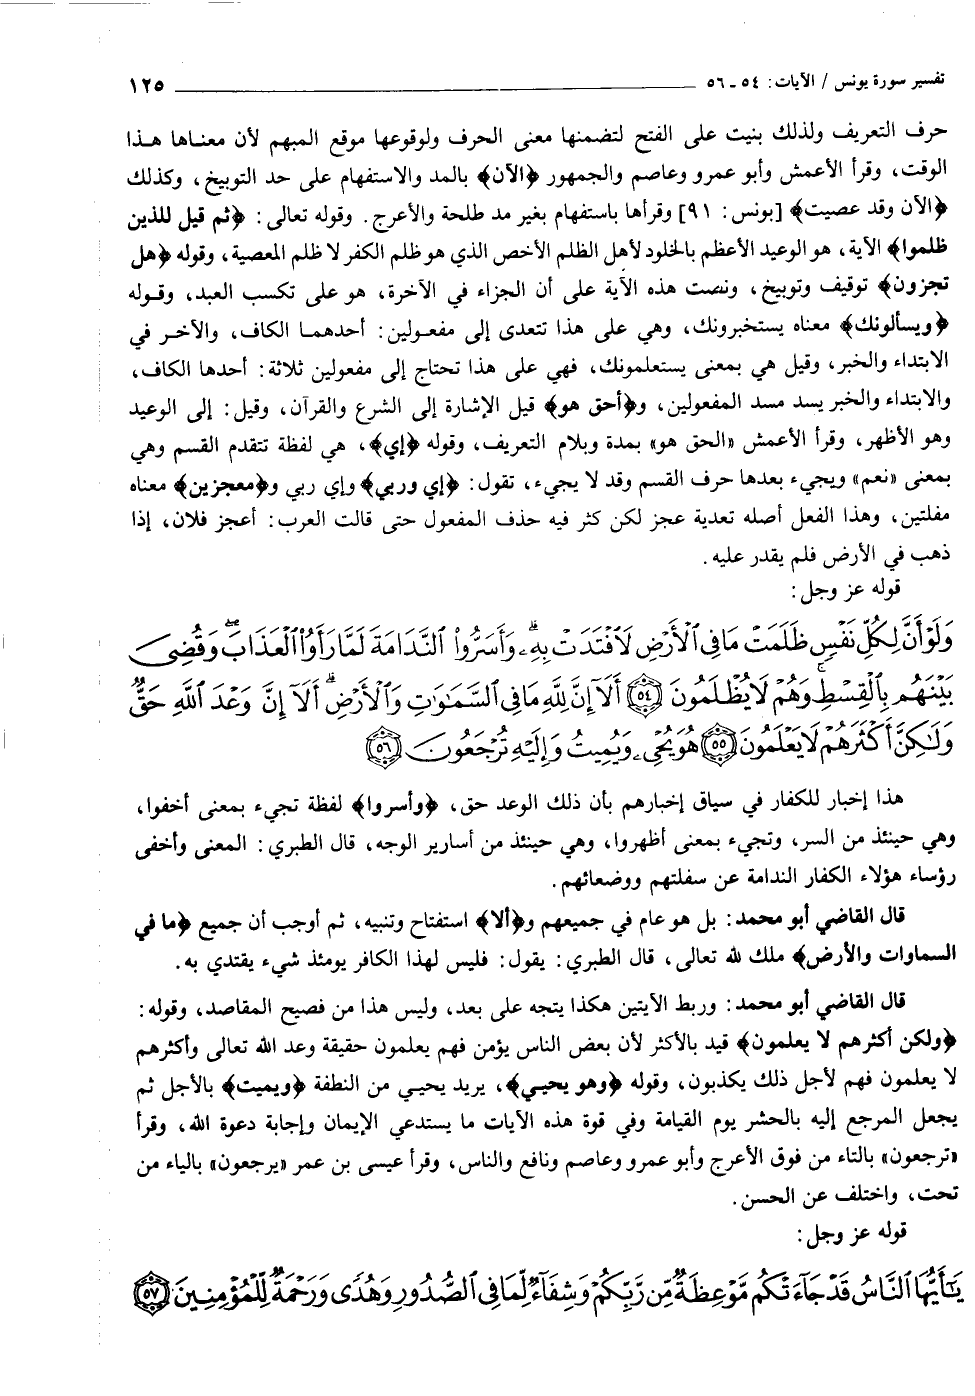 تفسير سورة يونس / الآيات: ٥٤ ـ ٥٦ ١٢٥
حرف التعريف ولذلك بنيت على الفتح لتضمنها معنى الحرف ولوقوعها موقع المبهم لأن معناها هذا
الوقت، وقرأ الأعمش وأبو عمرو وعاصم والجمهور ﴿الآن﴾ بالمد والاستفهام على حد التوبيخ، وكذلك
﴿الآن وقد عصيت﴾ [يونس: ٩١] وقرأها باستفهام بغير مد طلحة والأعرج. وقوله تعالى: ﴿ثم قيل للذين
ظلموا﴾ الآية، هو الوعيد الأعظم بالخلود لأهل الظلم الأخص الذي هو ظلم الكفر لا ظلم المعصية، وقوله ﴿هل
تجزون﴾ توقيف وتوبيخ، ونصت هذه الآية على أن الجزاء في الآخرة، هو على تكسب العبد، وقوله
﴿ويسألونك﴾ معناه يستخبرونك، وهي على هذا تتعدى إلى مفعولين: أحدهما الكاف، والآخر في
الابتداء والخبر، وقيل هي بمعنى يستعلمونك، فهي على هذا تحتاج إلى مفعولين ثلاثة: أحدها الكاف،
والابتداء والخبر يسد مسد المفعولين، و﴿أحق هو﴾ قيل الإشارة إلى الشرع والقرآن، وقيل: إلى الوعيد
وهو الأظهر، وقرأ الأعمش «الحق هو» بمدة وبلام التعريف، وقوله ﴿إي﴾، هي لفظة تتقدم القسم وهي
بمعنى «نعم» ويجيء بعدها حرف القسم وقد لا يجيء، تقول: ﴿إي وربي﴾ وإي ربي و﴿معجزين﴾ معناه
مفلتين، وهذا الفعل أصله تعدية عجز لكن كثر فيه حذف المفعول حتى قالت العرب: أعجز فلان، إذا
ذهب في الأرض فلم يقدر عليه.
قوله عز وجل:
وَلَوْ أَنَّ لِكُلِّ نَفْسٍ ظَلَمَتْ مَا فِي ٱلْأَرْضِ لَٱفْتَدَتْ بِهِۦۗ وَأَسَرُّوا۟ ٱلنَّدَامَةَ لَمَّا رَأَوُا۟ ٱلْعَذَابَۖ وَقُضِىَ
بَيْنَهُم بِٱلْقِسْطِۚ وَهُمْ لَا يُظْلَمُونَ ۝٥٤ أَلَآ إِنَّ لِلَّهِ مَا فِي ٱلسَّمَٰوَٰتِ وَٱلْأَرْضِۗ أَلَآ إِنَّ وَعْدَ ٱللَّهِ حَقٌّ
وَلَٰكِنَّ أَكْثَرَهُمْ لَا يَعْلَمُونَ ۝٥٥ هُوَ يُحْىِۦ وَيُمِيتُ وَإِلَيْهِ تُرْجَعُونَ ۝٥٦
هذا إخبار للكفار في سياق إخبارهم بأن ذلك الوعد حق، ﴿وأسروا﴾ لفظة تجيء بمعنى أخفوا،
وهي حينئذ من السر، وتجيء بمعنى أظهروا، وهي حينئذ من أسارير الوجه، قال الطبري: المعنى وأخفى
رؤساء هؤلاء الكفار الندامة عن سفلتهم ووضعائهم.
قال القاضي أبو محمد: بل هو عام في جميعهم و﴿ألا﴾ استفتاح وتنبيه، ثم أوجب أن جميع ﴿ما في
السماوات والأرض﴾ ملك لله تعالى، قال الطبري: يقول: فليس لهذا الكافر يومئذ شيء يقتدي به.
قال القاضي أبو محمد: وربط الآيتين هكذا يتجه على بعد، وليس هذا من فصيح المقاصد، وقوله:
﴿ولكن أكثرهم لا يعلمون﴾ قيد بالأكثر لأن بعض الناس يؤمن فهم يعلمون حقيقة وعد الله تعالى وأكثرهم
لا يعلمون فهم لأجل ذلك يكذبون، وقوله ﴿وهو يحيي﴾، يريد يحيي من النطفة ﴿ويميت﴾ بالأجل ثم
يجعل المرجع إليه بالحشر يوم القيامة وفي قوة هذه الآيات ما يستدعي الإيمان وإجابة دعوة الله، وقرأ
«ترجعون» بالتاء من فوق الأعرج وأبو عمرو وعاصم ونافع والناس، وقرأ عيسى بن عمر «يرجعون» بالياء من
تحت، واختلف عن الحسن.
قوله عز وجل:
يَٰٓأَيُّهَا ٱلنَّاسُ قَدْ جَآءَتْكُم مَّوْعِظَةٌ مِّن رَّبِّكُمْ وَشِفَآءٌ لِّمَا فِي ٱلصُّدُورِ وَهُدًى وَرَحْمَةٌ لِّلْمُؤْمِنِينَ ۝٥٧